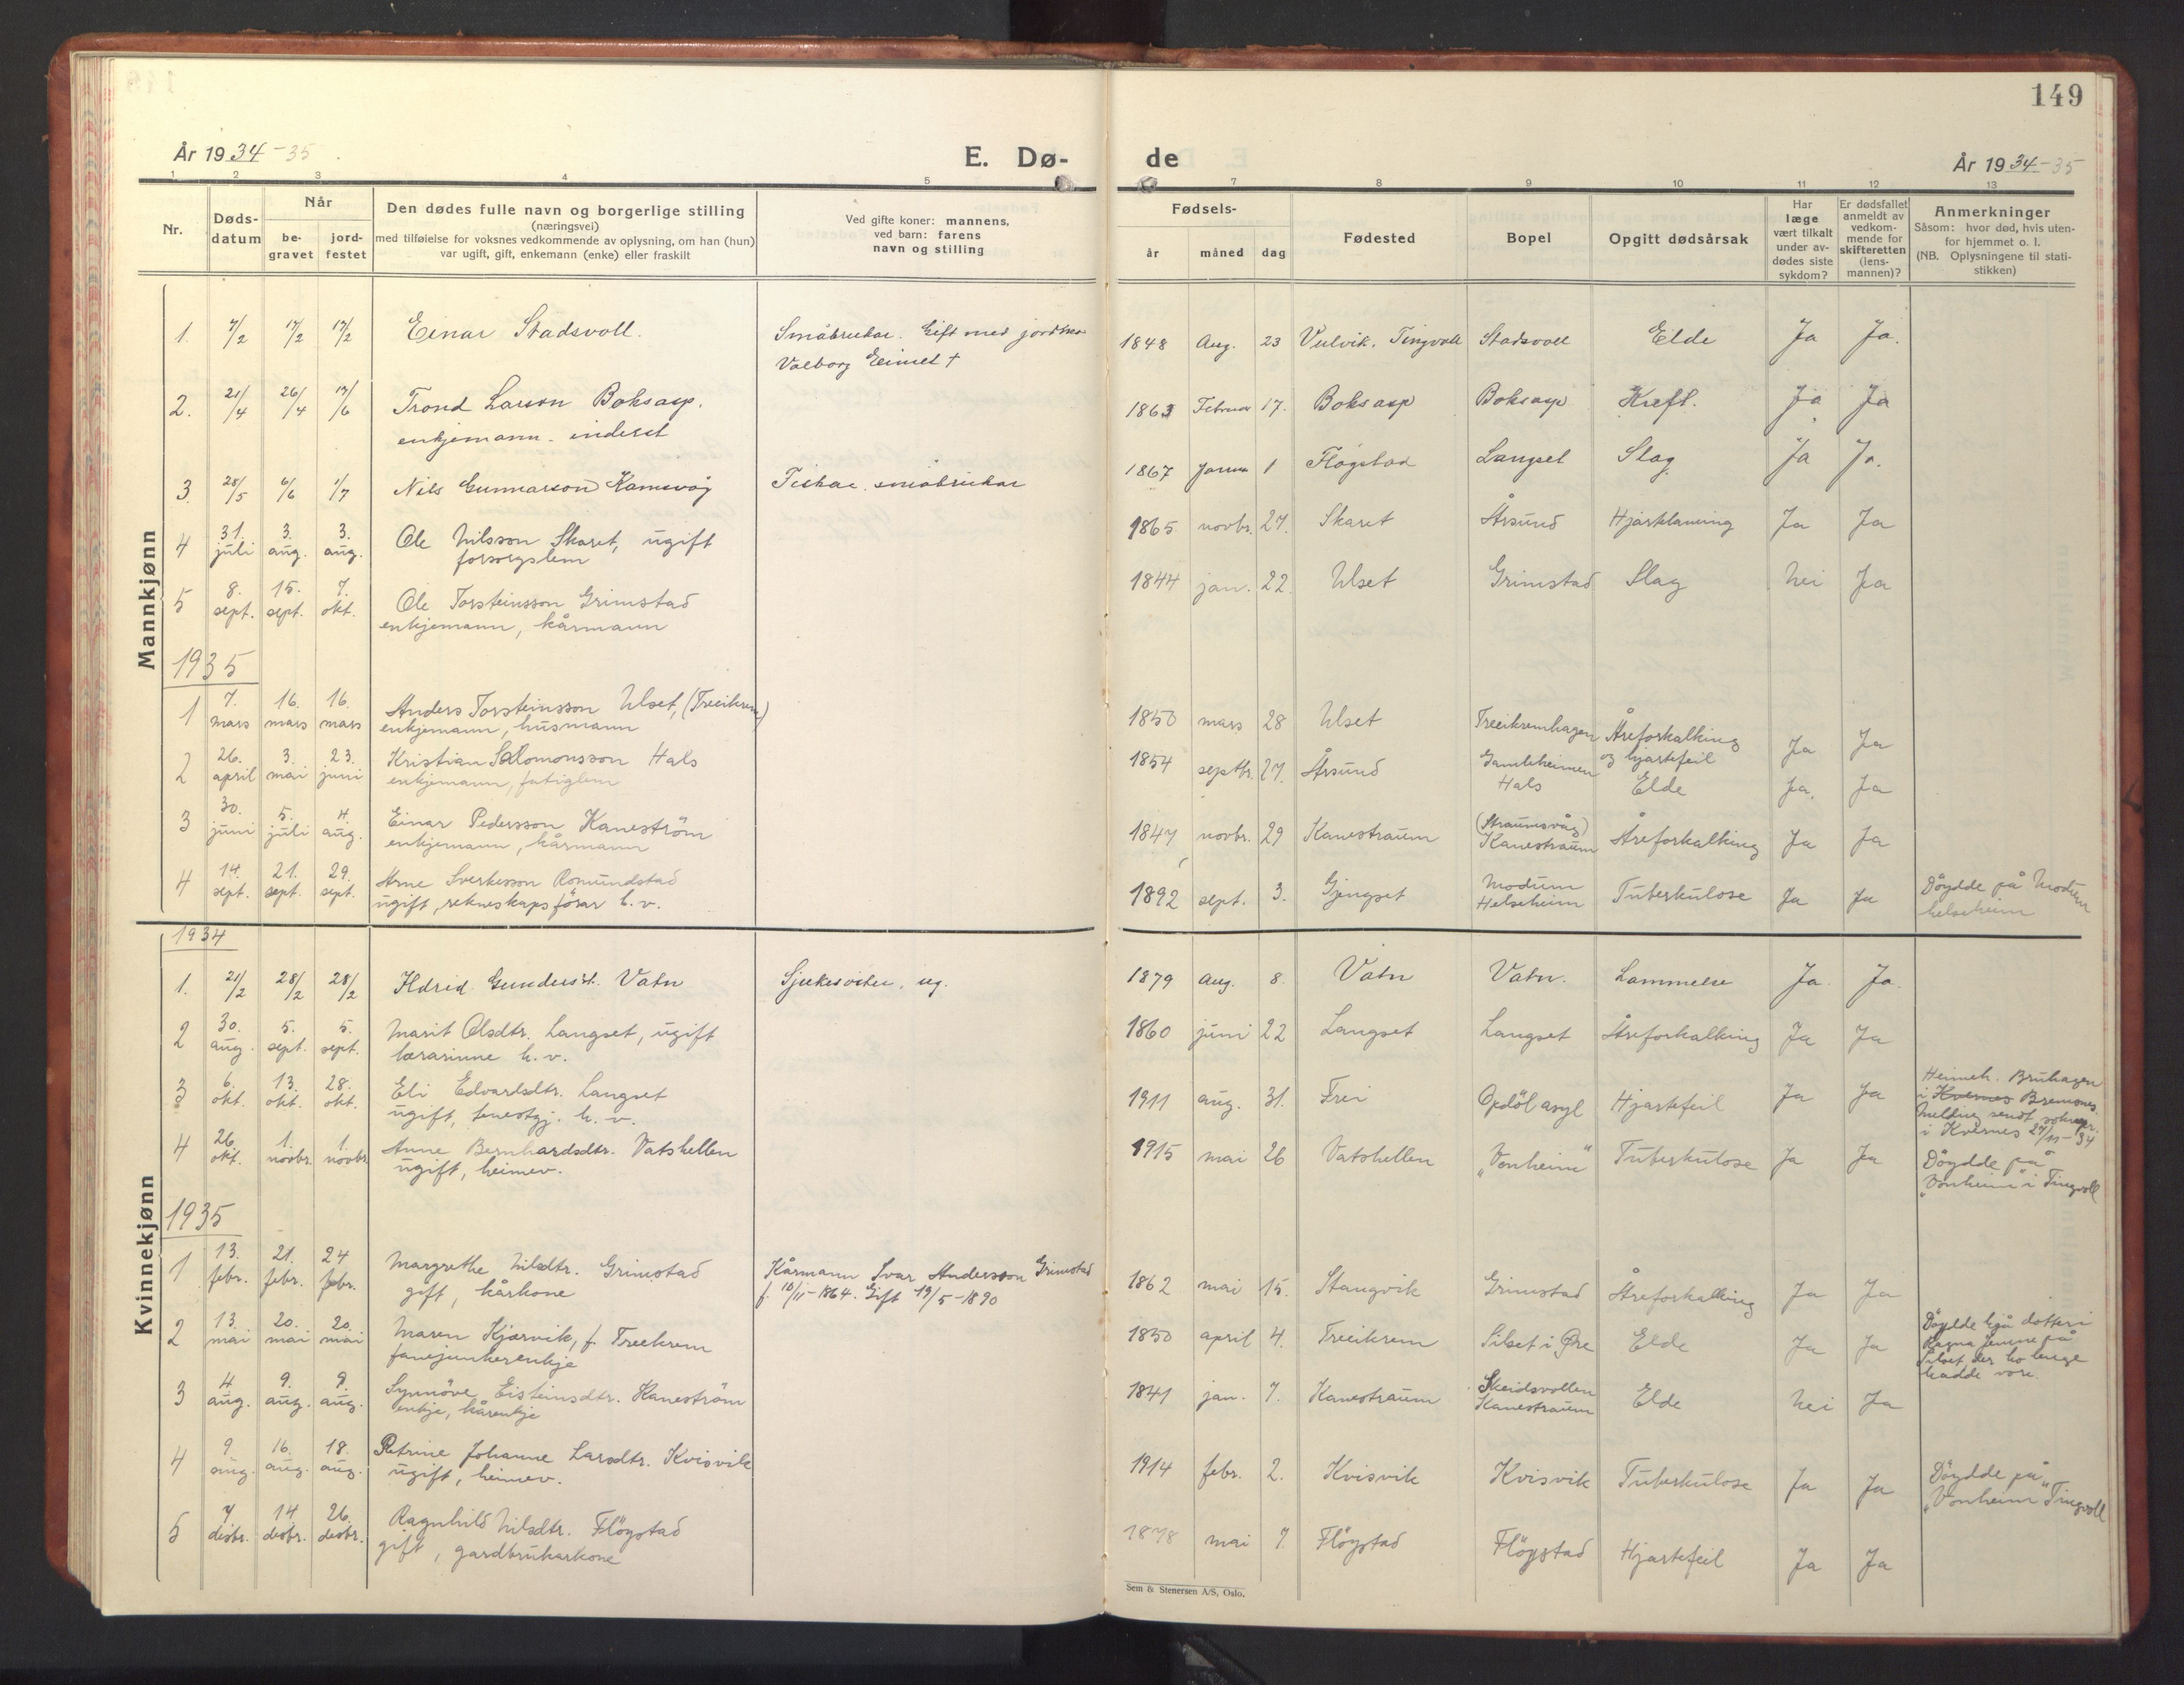 149
År 1934-35
E. Dø-
de
År 1934-35
1. 2 3 4 5
7 8 9 10 11 12 13
Nr.
Døds-
datum
Når
be-
gravet
jord-
festet
Den dødes fulle navn og borgerlige stilling
(næringsvei)
med tilføielse for voksnes vedkommende av oplysning, om han (hun)
var ugift, gift, enkemann (enke) eller fraskilt
Ved gifte koner: mannens,
ved barn: farens
navn og stilling
Fødsels-
år måned dag
Fødested
Bopel
Opgitt dødsårsak
Har
læge
vært tilkalt
under av-
dødes siste
sykdom?
Er dødsfallet
anmeldt av
vedkom-
mende for
skifteretten
(lens-
mannen)?
Anmerkninger
Såsom: hvor død, hvis uten-
for hjemmet o. l.
(NB. Oplysningene til stati-
stikken)
Mannkjønn
1. 7/2 17/2 17/2 Einar Stadsvoll. Småbrukar. Gift med jordmor 1848 Aug. 23 Vulvik, Tingvoll Stadsvoll Elde Ja Ja.
Valborg Eimet †
2. 21/4 26/4 17/6 Trond Larson Boksasp. 1863 Februar 17. Boksasp Boksasp Kreft. Ja Ja
enkjemann - inderst
3. 28/5 6/6 1/7 Nils Gunnarson Kamsvåg Fiskar, småbrukar 1867 Januar 1 Flogstad Langset Slag Ja Ja.
4 31. juli 3. aug. 3. aug. Ole Nilsson Skaret, ugift 1865 novbr. 27. Skaret Årsund Hjartelaming Ja Ja
forsorgslem
5 8. sept. 15. sept. 7. okt. Ole Torsteinsson Grimstad 1844 jan. 22. Ulset Grimstad Slag Nei Ja
enkjemann, kårmann
1935
1 7. mars 16. mars 16. mars Anders Torsteinsson Ulset, (Treeikrem) 1850 mars 28 Ulset Treeikremhagen Åreforkalking Ja Ja
enkjemann, husmann og hjartefeil
2 26. april 3. mai 23. juni Kristian Salomonsson Hals 1854 septbr. 27. Årsund Gamleheimen Elde Ja. Ja
enkjemann, fatiglem Hals
3 30. juni 5. juli 4. aug. Einar Pedersson Kaneström 1847 novbr. 29 Kanestraum (Straumsvåg) Åreforkalking Ja Ja
enkjemann, kårmann Kanestraum
4 14. sept. 21. sept. 29. sept. Arne Sverkesson Romundstad 1892 sept. 3. Gjengset Modum Tuberkulose Ja Ja Döydde på Modum
ugift, rekneskapsförar h. v. Helseheim helseheim
Kvinnekjønn
1934
1. 21/2 28/2 28/2 Ildrid Gundersdt. Vatn Sjukesöster, ug. 1879 Aug. 8. Vatn Vatn. Lammelse Ja. Ja
2 30. aug. 5. sept. 5. sept. Marit Olsdtr. Langset, ugift 1860 juni 22 Langset Langset Åreforkalking Ja Ja
lærarinne h. v.
3 6. okt. 13. okt. 28. okt. Eli Edvardsdtr. Langset 1911 aug. 31. Frei Opdöl asyl Hjartefeil Ja Ja Heimeh. Bruhagen
ugift, tenestgj. h. v. i Kvernes Bremsnes.
Melding sendt soknepr.
i Kvernes 27/11-34
4 26. okt. 1. novbr. 1. novbr. Anne Bernhardsdtr. Vatshellen 1915 mai 26 Vatshellen „Vonheim" Tuberkulose Ja Ja Döydde på
ugift, heimev. „Vonheim" i Tingvoll
1935
1 13. febr. 21. febr. 24 febr. Margrethe Nilsdtr. Grimstad Kårmann Ivar Andersson Grimstad 1862 mai 15. Stangvik Grimstad Åreforkalking Ja Ja
gift, kårkone f. 10/11-1864. Gift 19/5-1890
2 13. mai 20. mai 20. mai Maren Kjærvik, f. Treekrem 1850 april 4. Treeikrem Silset i Øre Elde Ja Ja Döydde hjå dotteri
fanejunkerenkje Ragna Jenine på
Silset der ho lenge
hadde vore.
3 4 aug. 9. aug. 9. aug. Synnöve Eisteinsdtr. Kaneström 1841 jan. 7. Kanestraum Skeidsvollen Elde Nei Ja
enkje, kårenkje Kanestraum
4 9. aug. 16. aug. 18. aug. Petrine Johanne Larsdtr. Kvisvik 1914 febr. 2. Kvisvik Kvisvik Tuberkulose Ja Ja Döydde på
ugift, heimev. „Vonheim" Tingvoll
5 7 desbr. 14 desbr. 26. desbr. Ragnhild Nilsdtr. Flögstad 1878 mai 7. Flögstad Flögstad Hjartefeil Ja Ja
gift, gardbrukarkone
Sem & Stenersen A/S, Oslo.